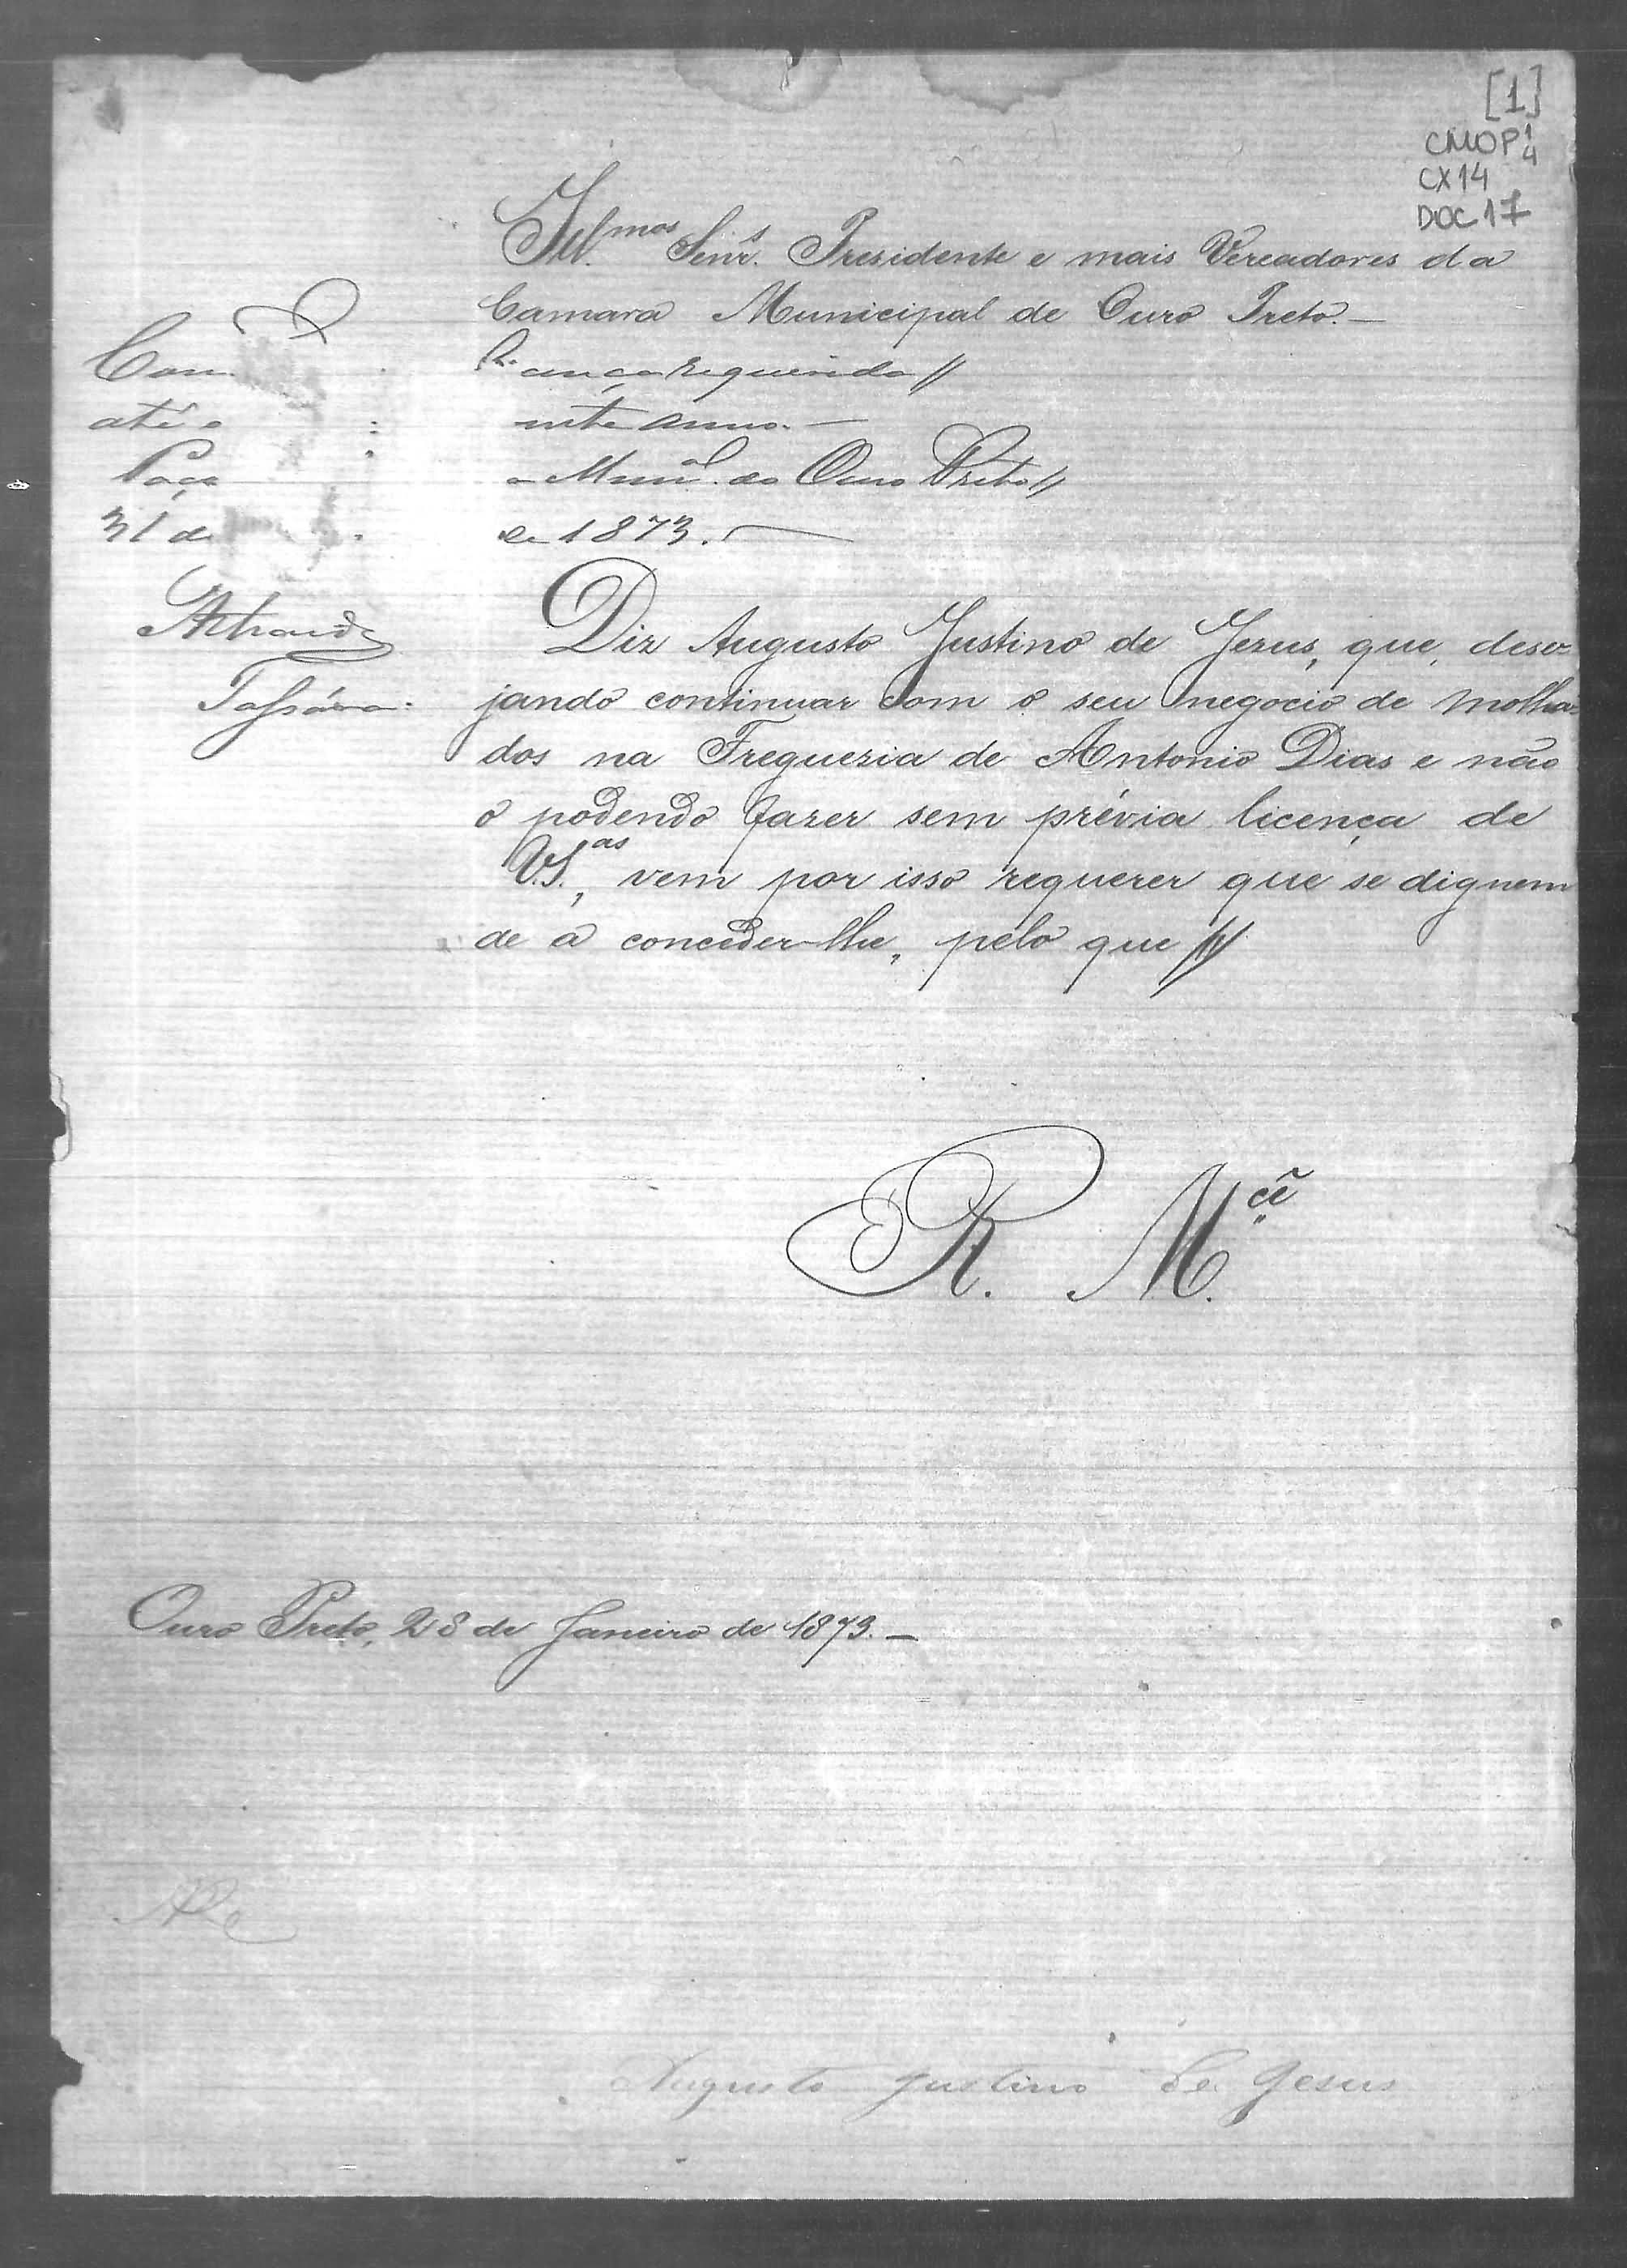 [1]
CMOP 1/4
CX 14
DOC 17
Ill.mos Senr.s Presidente e mais Vereadores da
Camara Municipal de Ouro Preto.—
Con licença requerida //
até o neste anno.—
Paço Mun.al do Ouro Preto //
31 de de 1873.—
Diz Augusto Justino de Jezus, que, dese-
jando continuar com o seu negocio de molha-
dos na Fregueria de Antonio Dias e não
o podendo fazer sem prévia licença de
V.S.as, vem por isso requerer que se dignem
de a conceder-lhe, pelo que //
E R. M.cê
Ouro Preto, 28 de Janeiro de 1873.—
Augusto Justino de Jesus